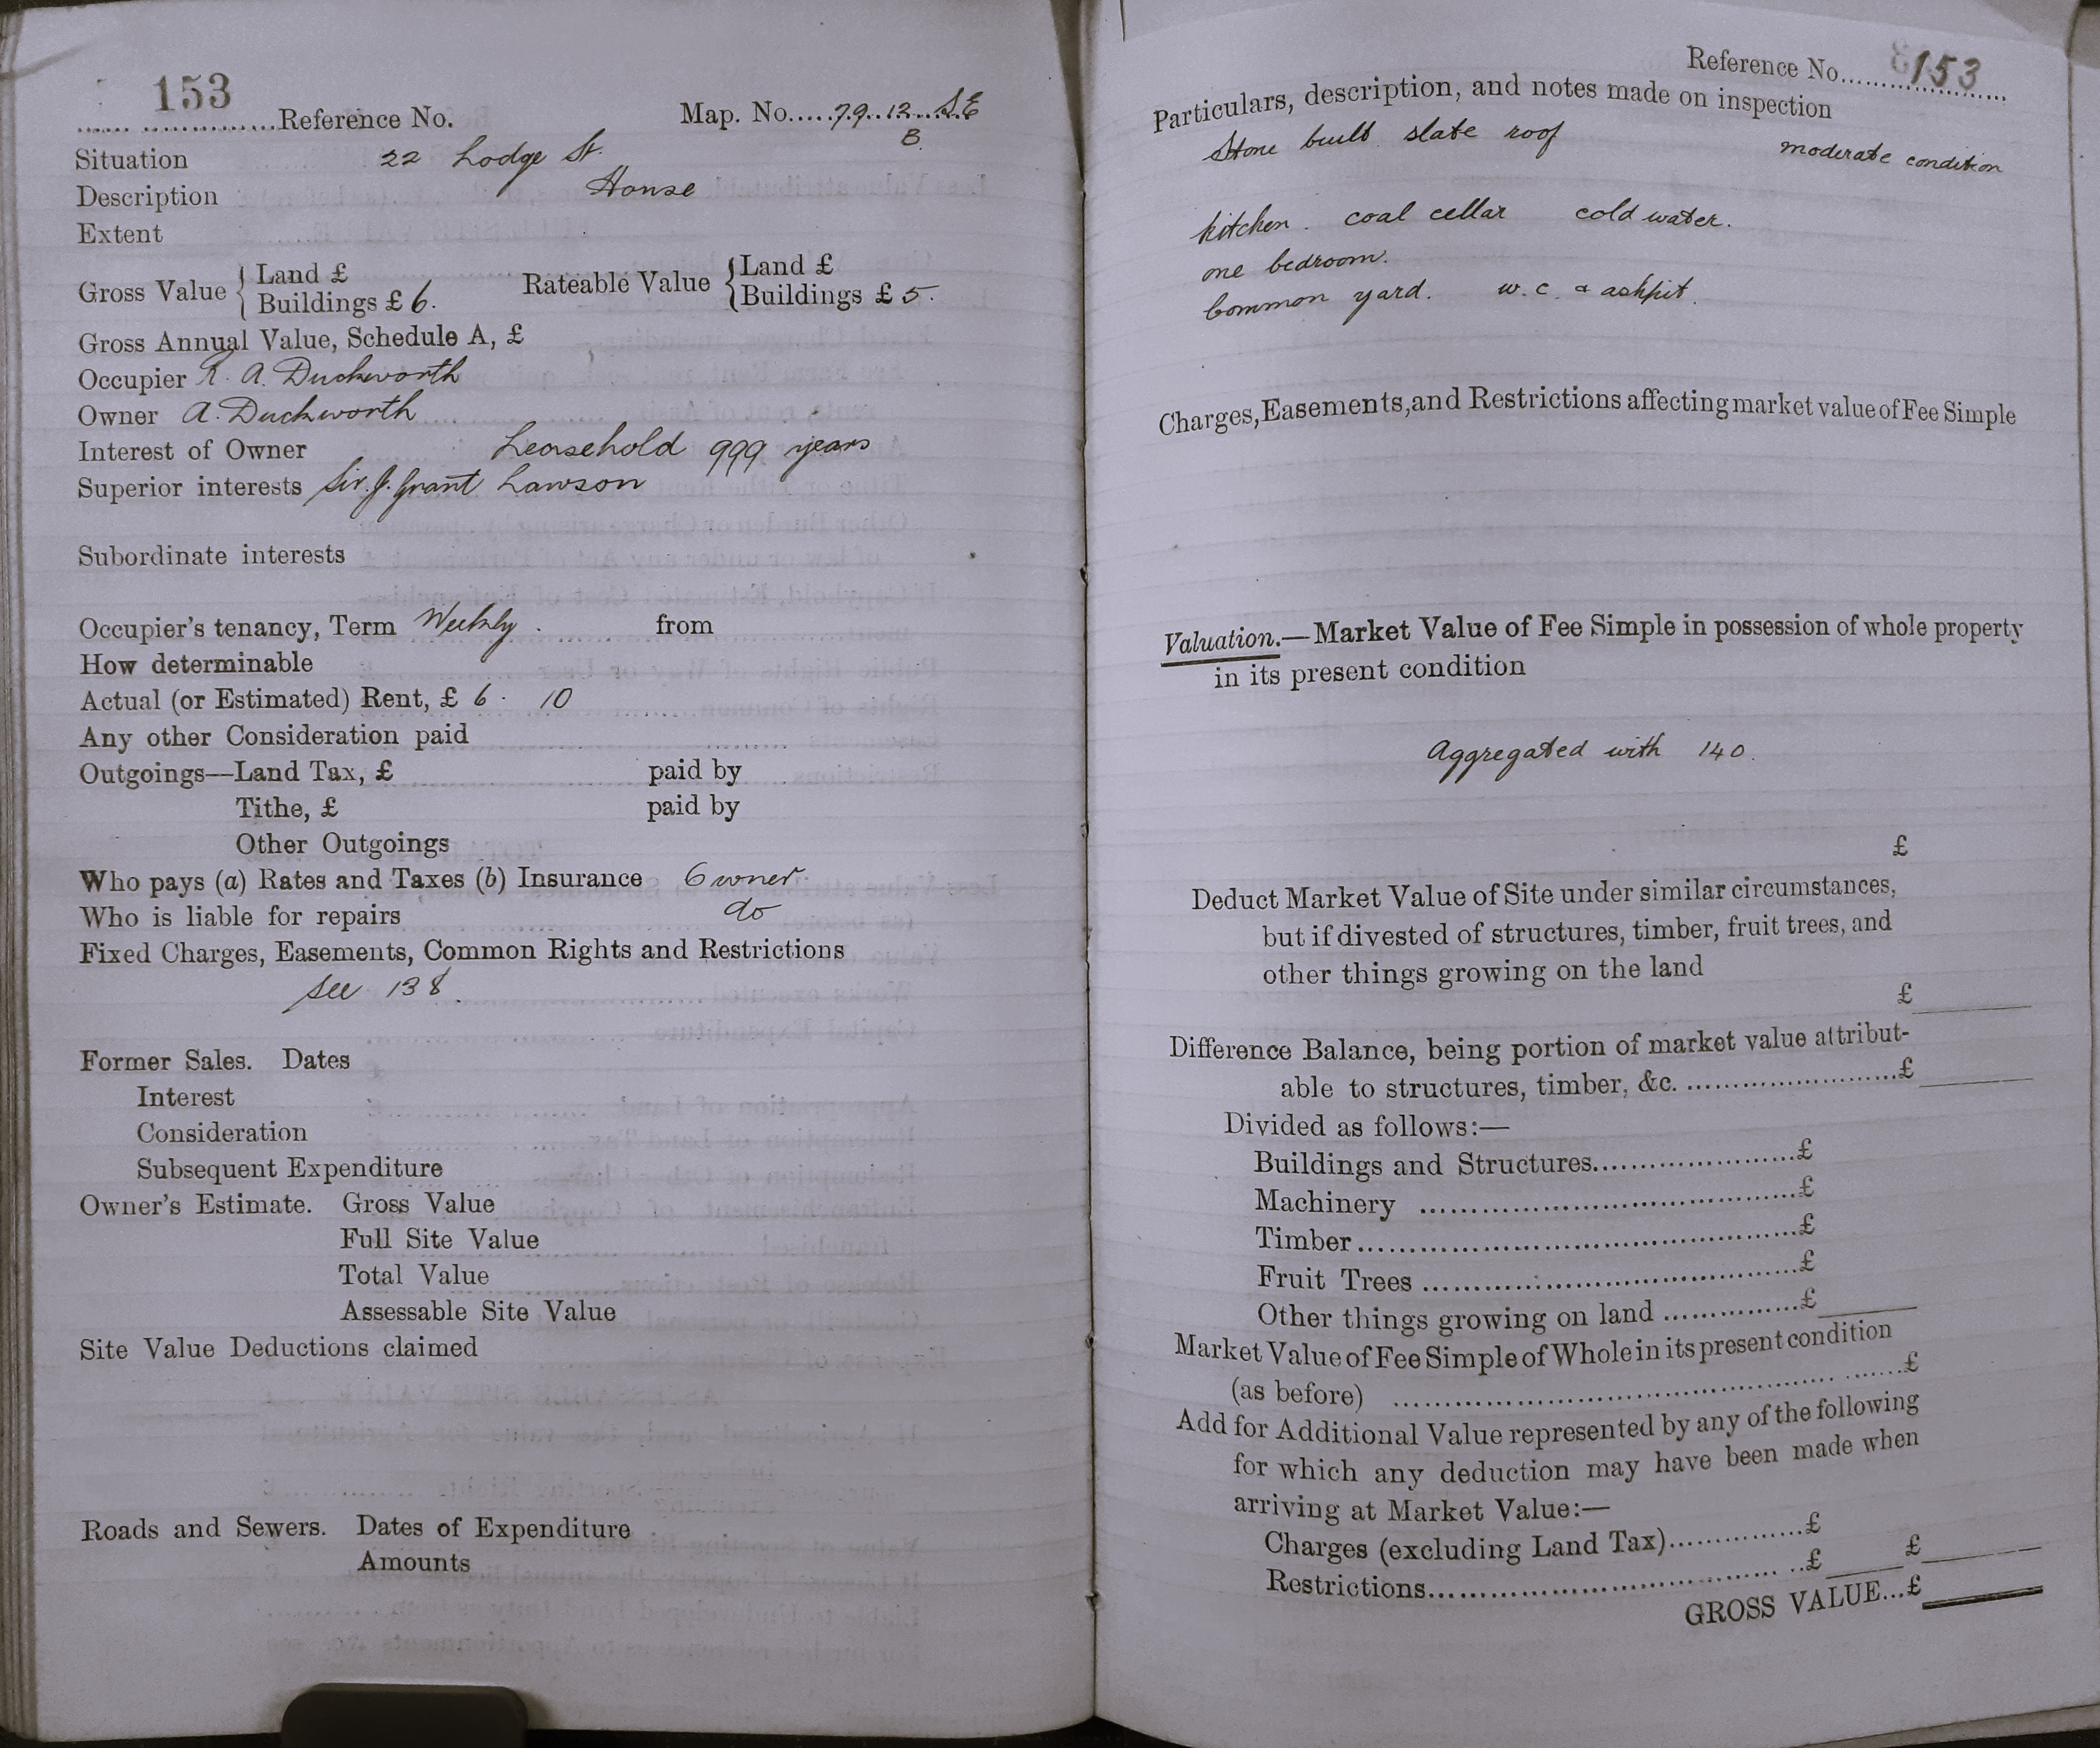 153
Reference No. Map. No. 79.12. S.E
B
Situation 22 Lodge St.
Description House
Extent
Gross Value { Land £
Buildings £ 6. Rateable Value { Land £
Buildings £ 5.
Gross Annual Value, Schedule A, £
Occupier R. A. Duckworth
Owner A. Duckworth
Interest of Owner Leasehold 999 years
Superior interests Sir. J. Grant Lawson
Subordinate interests
Occupier's tenancy, Term Weekly. from
How determinable
Actual (or Estimated) Rent, £ 6. 10
Any other Consideration paid
Outgoings—Land Tax, £ paid by
Tithe, £ paid by
Other Outgoings
Who pays (a) Rates and Taxes (b) Insurance Owner
Who is liable for repairs do
Fixed Charges, Easements, Common Rights and Restrictions
See 138.
Former Sales. Dates
Interest
Consideration
Subsequent Expenditure
Owner's Estimate. Gross Value
Full Site Value
Total Value
Assessable Site Value
Site Value Deductions claimed
Roads and Sewers. Dates of Expenditure
Amounts
Reference No. 153
Particulars, description, and notes made on inspection
Stone built slate roof moderate condition
kitchen. coal cellar cold water.
one bedroom.
Common yard. w.c. & ashpit.
Charges, Easements, and Restrictions affecting market value of Fee Simple
Valuation.—Market Value of Fee Simple in possession of whole property
in its present condition
Aggregated with 140.
£
Deduct Market Value of Site under similar circumstances,
but if divested of structures, timber, fruit trees, and
other things growing on the land
£
Difference Balance, being portion of market value attribut-
able to structures, timber, &c. £
Divided as follows:—
Buildings and Structures £
Machinery £
Timber £
Fruit Trees £
Other things growing on land £
Market Value of Fee Simple of Whole in its present condition
(as before) £
Add for Additional Value represented by any of the following
for which any deduction may have been made when
arriving at Market Value:—
Charges (excluding Land Tax) £
Restrictions £ £
GROSS VALUE...£